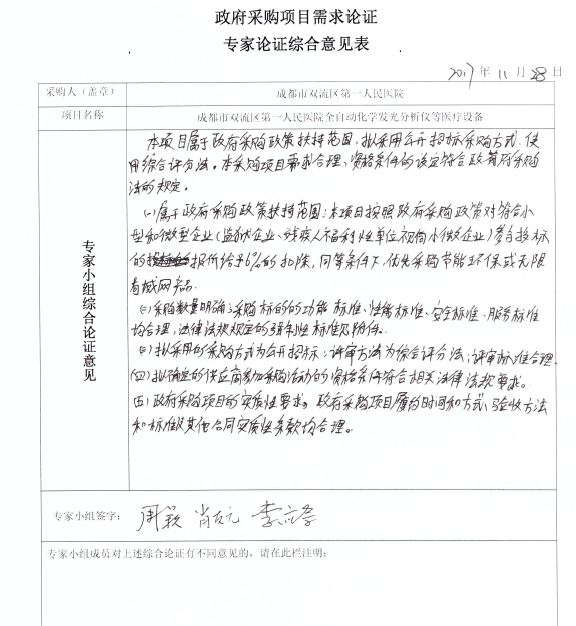 政府采购项目需求论证
专家论证综合意见表
2017年11月28日
采购人（盖章） 成都市双流区第一人民医院
项目名称 成都市双流区第一人民医院全自动化学发光分析仪等医疗设备
专家小组综合论证意见
本项目属于政府采购政策扶持范围，拟采用公开招标采购方式，使
用综合评分法。本采购项目需求合理、资格条件的设定符合政府采购
法的规定。
(一)属于政府采购政策扶持范围：本项目按照政府采购政策对符合小
型和微型企业(监狱企业、残疾人福利性单位视同小微企业)参与投标
的报价给予6%的扣除，同等条件下，优先采购节能环保或无限
局域网产品.
(二)采购数量明确；采购标的的功能标准、性能标准、安全标准、服务标准
均合理，法律法规规定的强制性标准见附件。
(三)拟采用的采购方式为公开招标，评审方法为综合评分法，评审标准合理.
(四)拟确定的供应商参加采购活动的资格条件符合相关法律法规要求。
(五)政府采购项目的实质性要求，政府采购项目履约时间和方式、验收方法
和标准及其他合同实质性条款均合理。
专家小组签字： 周颖 肖友元
专家小组成员对上述综合论证有不同意见的，请在此栏注明：